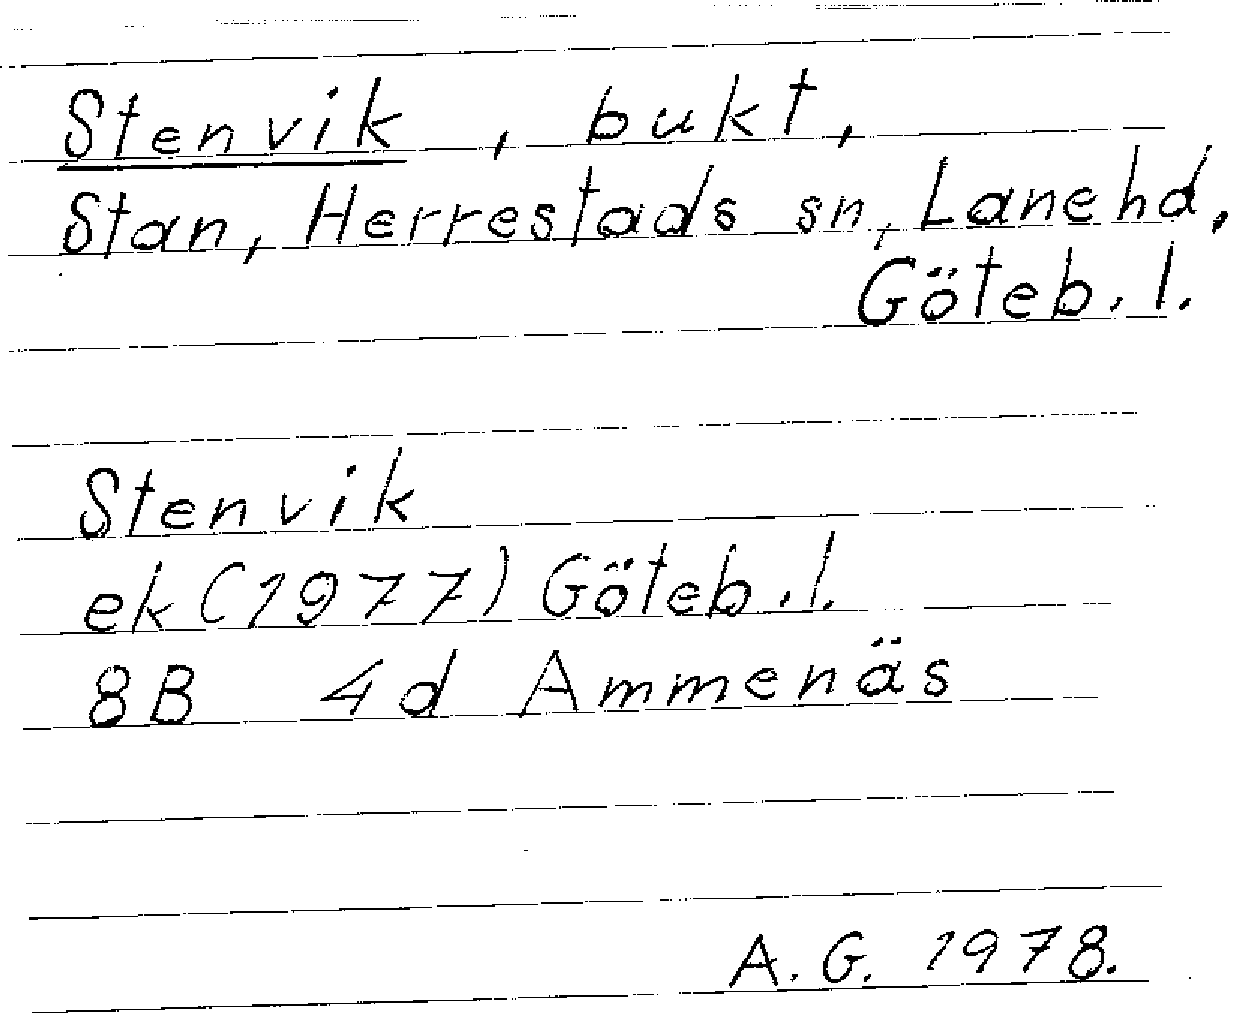 Stenvik, bukt,
Stan, Herrestads sn, Lane hd.
Göteb. l.
Stenvik
ek (1977) Göteb. l.
8B 4d Ammenäs
A. G. 1978.